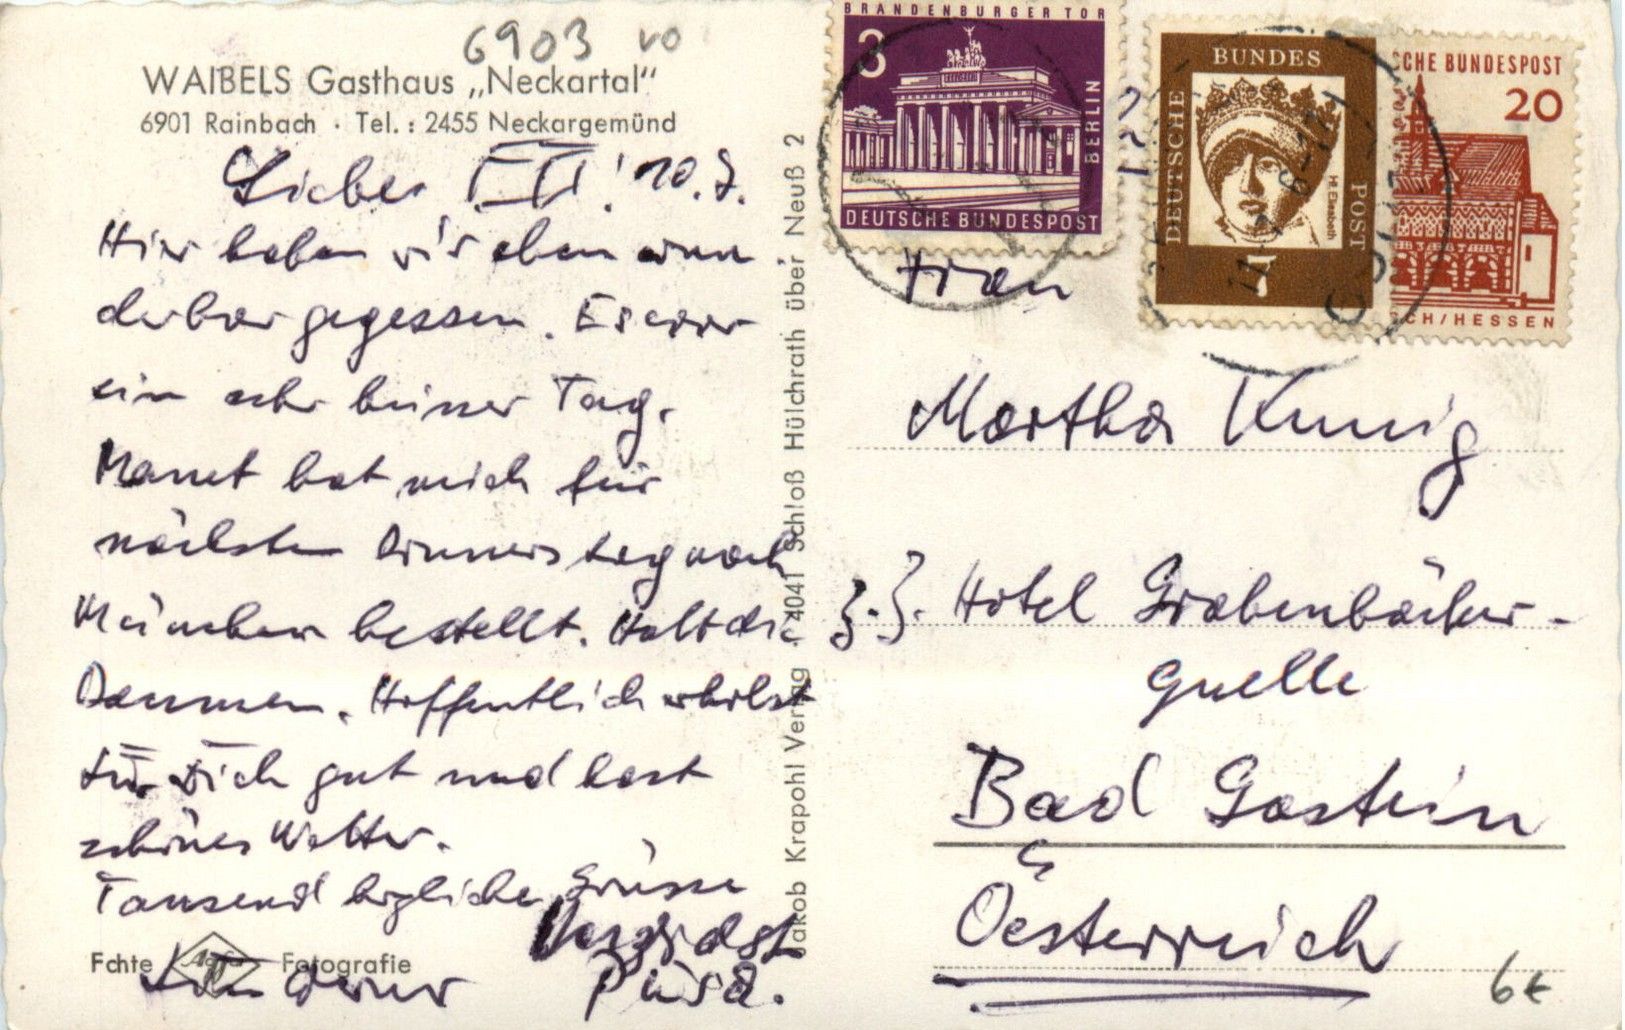 6903
WAIBELS Gasthaus „Neckartal"
6901 Rainbach · Tel.: 2455 Neckargemünd
10.7.
Hier haben wir eben wun
derbar gegessen. Es war
ein sehr heisser Tag.
hat mich für
nächsten Donnerstag nach
München bestellt. Halt die
Daumen. Hoffentlich erholst
Du Dich gut und hast
schönes Wetter.
Tausend herzliche Grüsse
Echte Agfa Fotografie
Jakob Krapohl Verlag · 4041 Schloß Hülchrath über Neuß 2
BRANDENBURGER TOR
3
BERLIN
DEUTSCHE BUNDESPOST
DEUTSCHE
BUNDES
POST
Hl. Elisabeth
7
SCHE BUNDESPOST
20
SCH/HESSEN
Frau
Martha Kunig
z.Z. Hotel Grabenbäcker-
quelle
Bad Gastein
Oesterreich
6€